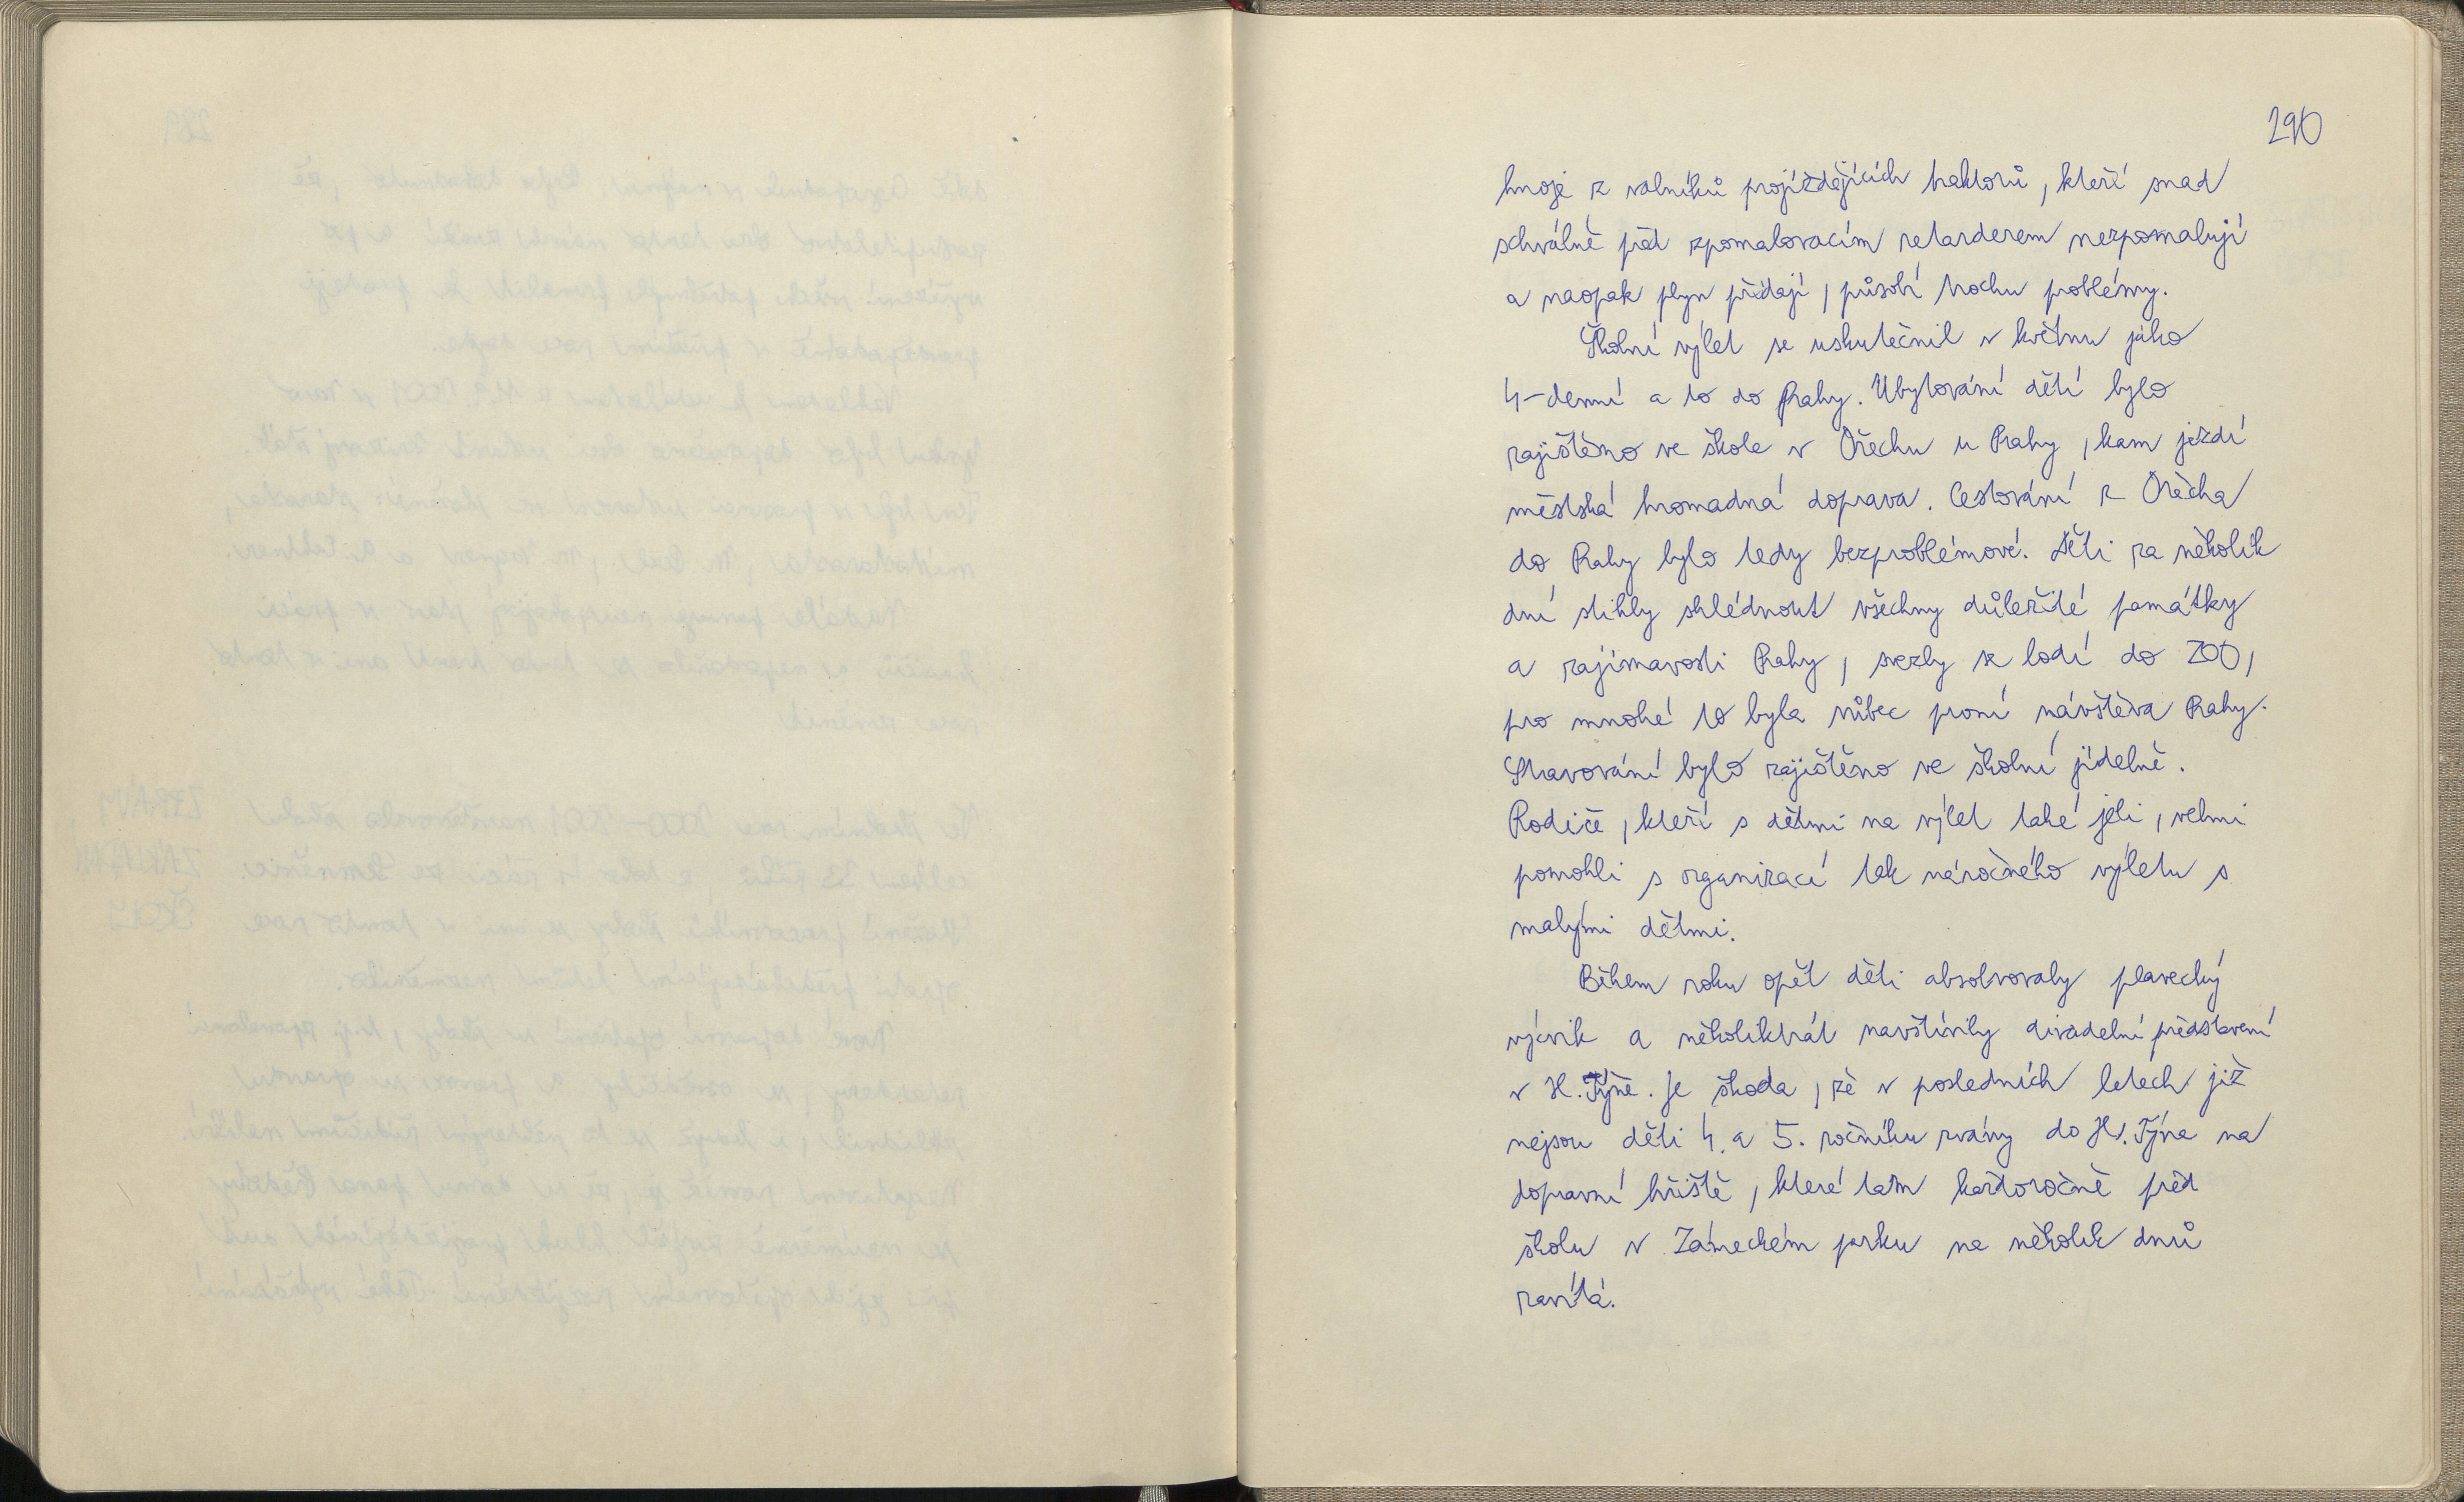 290
hnoje z valníků projíždějících traktorů, kteří snad
schválně před zpomalovacím retarderem nezpomalují
a naopak plyn přidají, působí trochu problémy.
Školní výlet se uskutečnil v květnu jako
4-denní a to do Prahy. Ubytování dětí bylo
zajištěno ve škole v Ořechu u Prahy, kam jezdí
městská hromadná doprava. Cestování z Ořecha
do Prahy bylo tedy bezproblémové. Děti za několik
dní stihly shlédnout všechny důležité památky
a zajímavosti Prahy, svezly se lodí do ZOO,
pro mnohé to byla vůbec první návštěva Prahy.
Stravování bylo zajištěno ve školní jídelně.
Rodiče, kteří s dětmi na výlet také jeli, velmi
pomohli s organizací tak náročného výletu s
malými dětmi.
Během roku opět děti absolvovaly plavecký
výcvik a několikrát navštívily divadelní představení
v H. Týně. Je škoda, že v posledních letech již
nejsou děti 4. a 5. ročníku zvány do H. Týna na
dopravní hřiště, které tam každoročně před
školu v Zámeckém parku na několik dnů
zavítá.